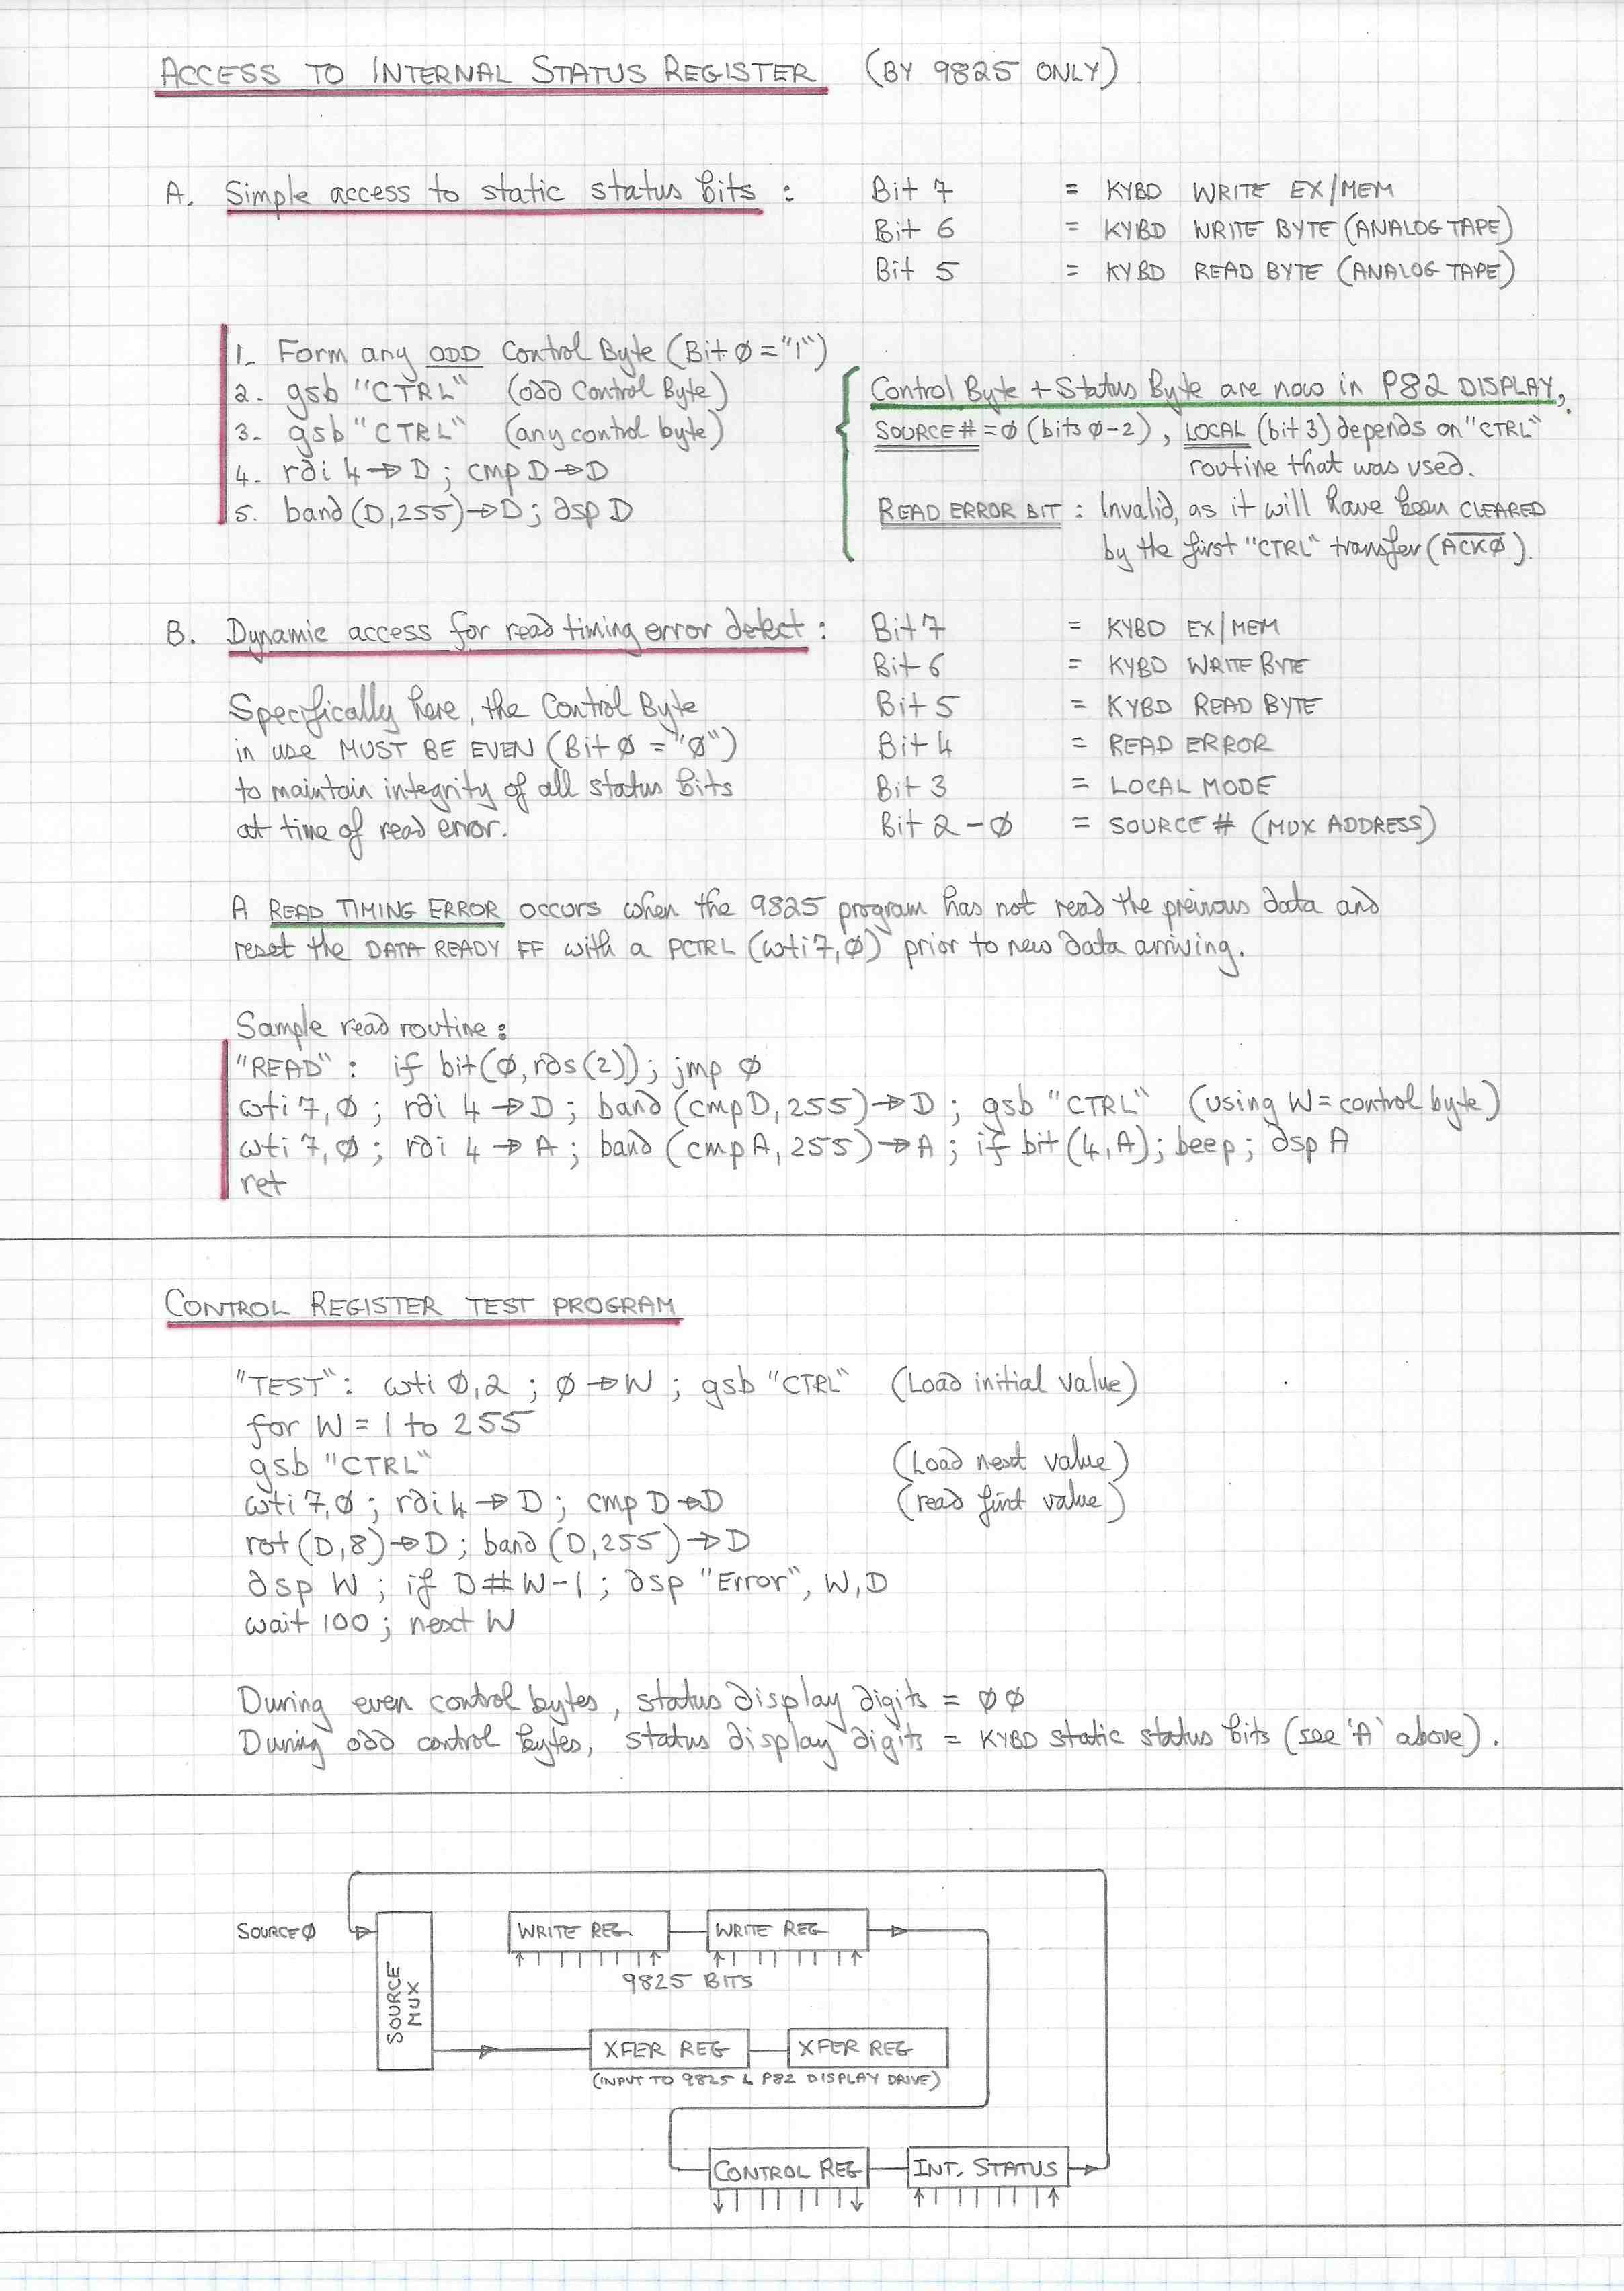 ACCESS TO INTERNAL STATUS REGISTER (BY 9825 ONLY)
A. Simple access to static status bits : Bit 7 = KYBD WRITE EX/MEM
Bit 6 = KYBD WRITE BYTE (ANALOG TAPE)
Bit 5 = KYBD READ BYTE (ANALOG TAPE)
1- Form any ODD Control Byte (Bit Ø = "1")
2- gsb "CTRL" (odd Control Byte)
3- gsb "CTRL" (any control byte)
4- rdi 4→D ; cmp D→D
5. band (D,255)→D ; dsp D
Control Byte + Status Byte are now in P82 DISPLAY,
SOURCE # = Ø (bits Ø-2) , LOCAL (bit 3) depends on "CTRL"
routine that was used.
READ ERROR BIT : Invalid, as it will have been CLEARED
by the first "CTRL" transfer (A̅C̅K̅Ø̅).
B. Dynamic access for read timing error detect : Bit 7 = KYBD EX/MEM
Bit 6 = KYBD WRITE BYTE
Bit 5 = KYBD READ BYTE
Bit 4 = READ ERROR
Bit 3 = LOCAL MODE
Bit 2 - Ø = SOURCE # (MUX ADDRESS)
Specifically here, the Control Byte
in use MUST BE EVEN (Bit Ø = "Ø")
to maintain integrity of all status bits
at time of read error.
A READ TIMING ERROR occurs when the 9825 program has not read the previous data and
reset the DATA READY FF with a PCTRL (wti 7,Ø) prior to new data arriving.
Sample read routine :
"READ" : if bit(Ø,rds(2)); jmp Ø
wti 7,Ø ; rdi 4→D ; band (cmp D,255)→D ; gsb "CTRL" (using W = control byte)
wti 7,Ø ; rdi 4→A ; band (cmp A,255)→A ; if bit (4,A) ; beep ; dsp A
ret
CONTROL REGISTER TEST PROGRAM
"TEST" : wti Ø,2 ; Ø→W ; gsb "CTRL" (Load initial value)
for W = 1 to 255
gsb "CTRL" (Load next value)
wti 7,Ø ; rdi 4→D ; cmp D→D (read first value)
rot (D,8)→D ; band (D,255)→D
dsp W ; if D#W-1 ; dsp "Error", W,D
wait 100 ; next W
During even control bytes, status display digits = ØØ
During odd control bytes, status display digits = KYBD static status bits (see 'A' above).
SOURCE Ø
SOURCE MUX
WRITE REG. WRITE REG
9825 BITS
XFER REG XFER REG
(INPUT TO 9825 & P82 DISPLAY DRIVE)
CONTROL REG INT. STATUS